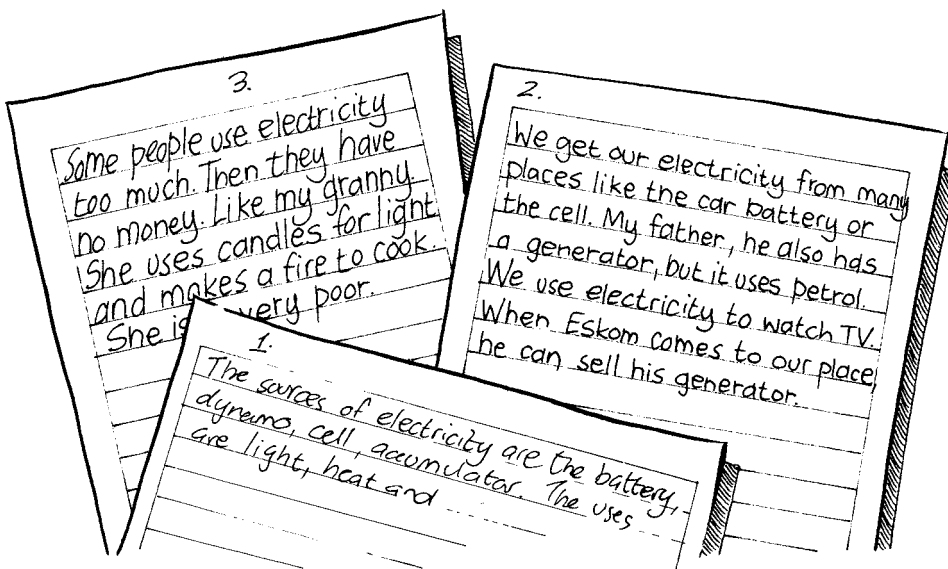 3.
Some people use electricity
too much. Then they have
no money. Like my granny.
She uses candles for light
and makes a fire to cook.
She is very poor.
2.
We get our electricity from many
places like the car battery or
the cell. My father, he also has
a generator, but it uses petrol.
We use electricity to watch TV.
When Eskom comes to our place,
he can sell his generator.
1.
The sources of electricity are the battery,
dynamo, cell, accumulator. The uses
are light, heat and